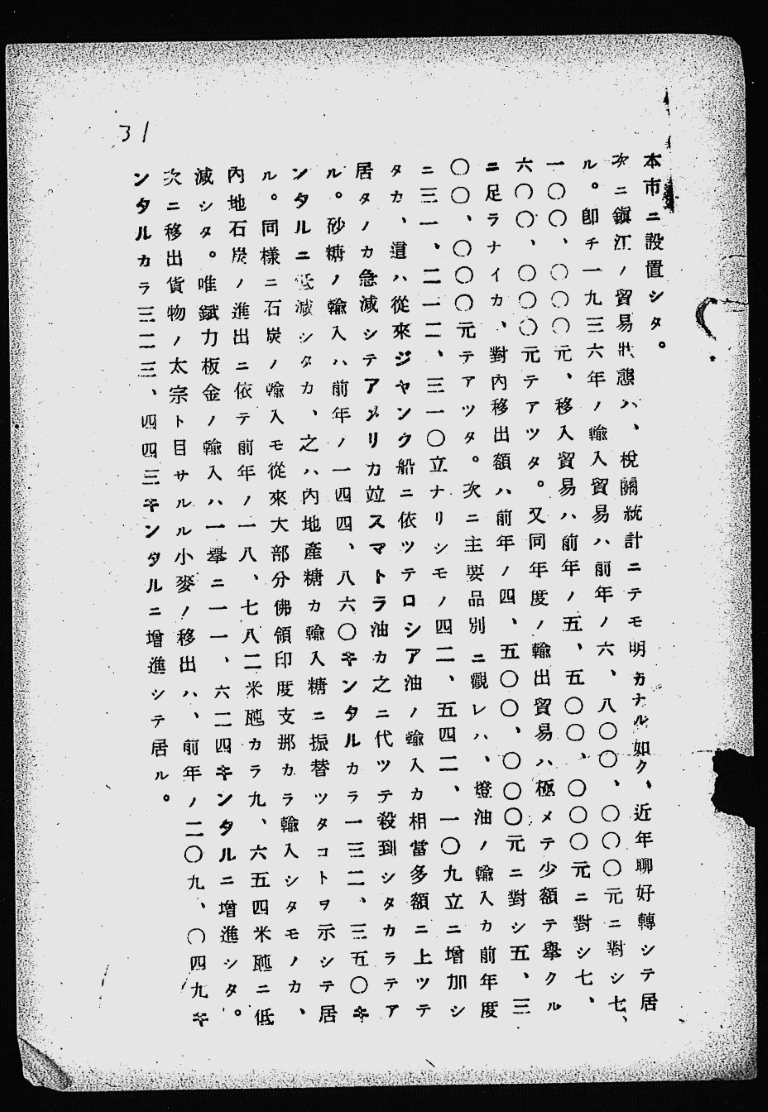 31
本市ニ設置シタ。
次ニ鎭江ノ貿易狀態ハ、稅關統計ニテモ明カナル如ク、近年聊好轉シテ居
ル。卽チ一九三六年ノ輸入貿易ハ前年ノ六、八〇〇、〇〇〇元ニ對シ七、
一〇〇、〇〇〇元、移入貿易ハ前年ノ五、五〇〇、〇〇〇元ニ對シ七、
六〇〇、〇〇〇元テアツタ。又同年度ノ輸出貿易ハ極メテ少額テ擧クル
ニ足ラナイカ、對內移出額ハ前年ノ四、五〇〇、〇〇〇元ニ對シ五、三
〇〇、〇〇〇元テアツタ。次ニ主要品別ニ觀レハ、燈油ノ輸入カ前年度
ニ三一、二一二、三一〇立ナリシモノ四二、五四二、一〇九立ニ增加シ
タカ、這ハ從來ジヤンク船ニ依ツテロシア油ノ輸入カ相當多額ニ上ツテ
居タノカ急減シテアメリカ竝スマトラ油カ之ニ代ツテ殺到シタカラテア
ル。砂糖ノ輸入ハ前年ノ一四四、八六〇キンタルカラ一三二、三五〇キ
ンタルニ低減シタカ、之ハ內地產糖カ輸入糖ニ振替ツタコトヲ示シテ居
ル。同樣ニ石炭ノ輸入モ從來大部分佛領印度支那カラ輸入シタモノカ、
內地石炭ノ進出ニ依テ前年ノ一八、七八二米噸カラ九、六五四米噸ニ低
減シタ。唯錻力板金ノ輸入ハ一擧ニ一一、六二四キンタルニ增進シタ。
次ニ移出貨物ノ太宗ト目サルル小麥ノ移出ハ、前年ノ二〇九、〇四九キ
ンタルカラ三二三、四四三キンタルニ增進シテ居ル。